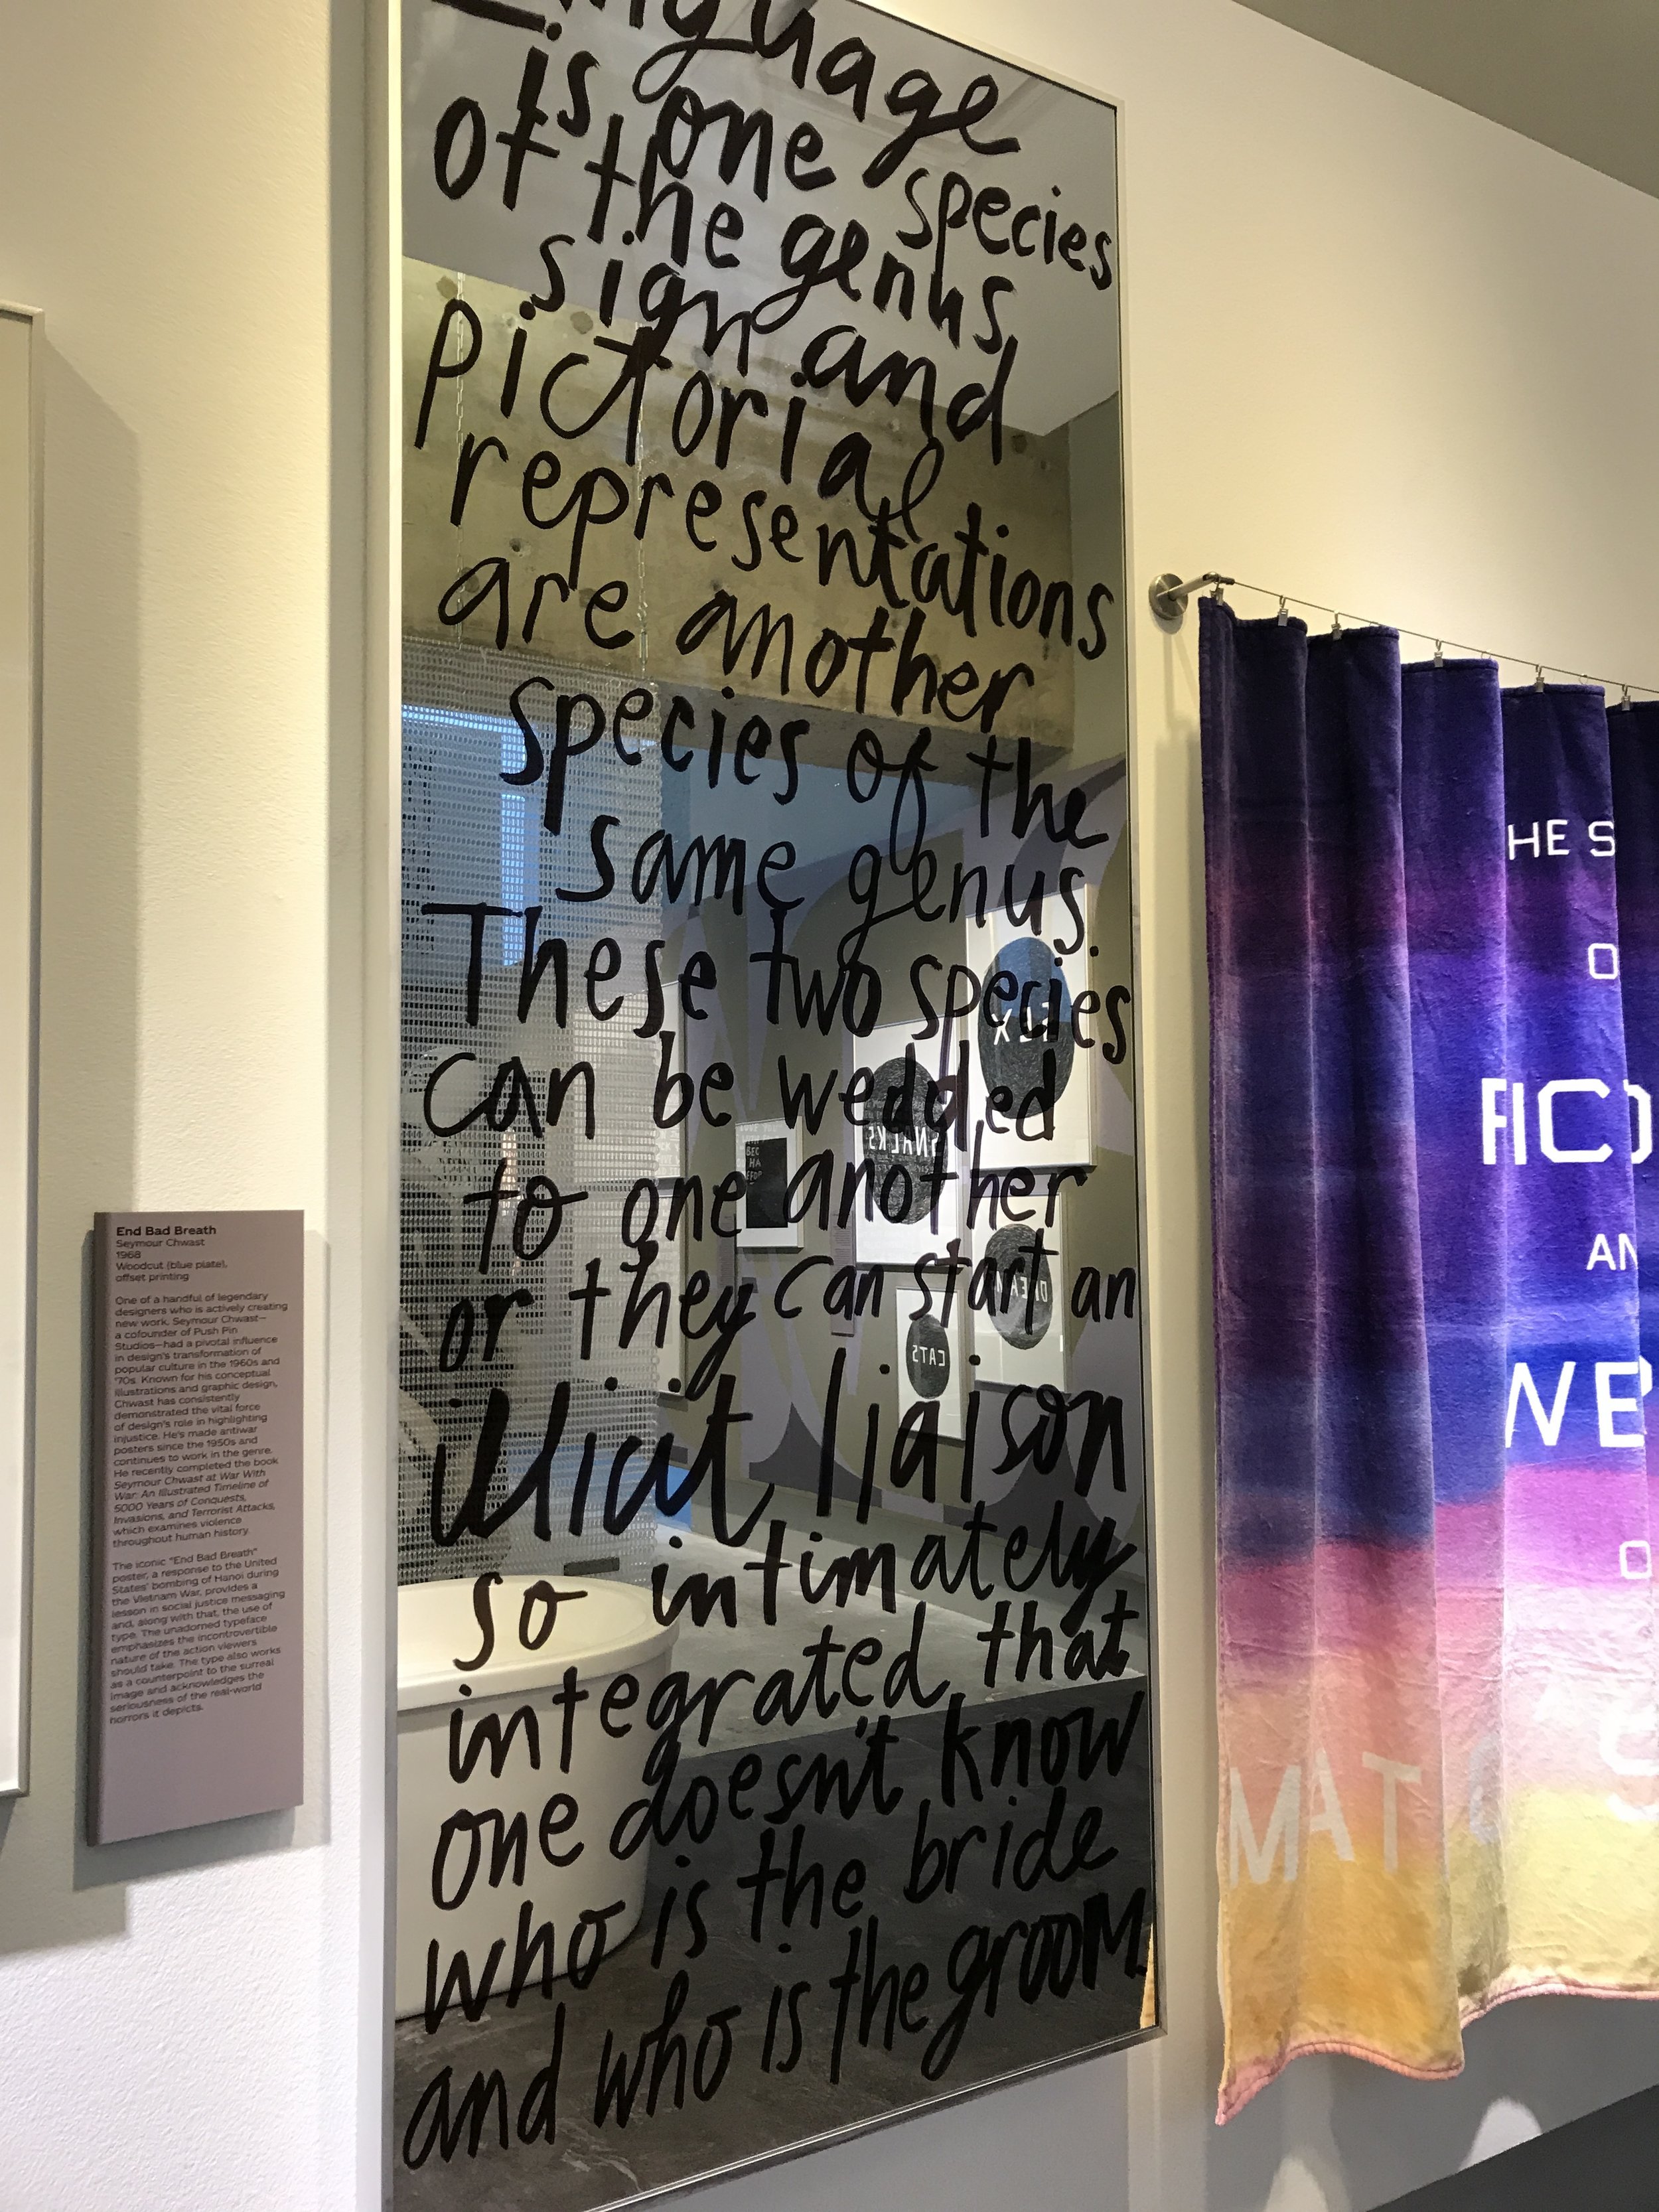 End Bad Breath
Seymour Chwast
1968
Woodcut (blue plate),
offset printing
One of a handful of legendary
designers who is actively creating
new work, Seymour Chwast—
a cofounder of Push Pin
Studios—had a pivotal influence
in design's transformation of
popular culture in the 1960s and
'70s. Known for his conceptual
illustrations and graphic design,
Chwast has consistently
demonstrated the vital force
of design's role in highlighting
injustice. He's made antiwar
posters since the 1950s and
continues to work in the genre.
He recently completed the book
Seymour Chwast at War With
War: An Illustrated Timeline of
5000 Years of Conquests,
Invasions, and Terrorist Attacks,
which examines violence
throughout human history.
The iconic "End Bad Breath"
poster, a response to the United
States' bombing of Hanoi during
the Vietnam War, provides a
lesson in social justice messaging
and, along with that, the use of
type. The unadorned typeface
emphasizes the incontrovertible
nature of the action viewers
should take. The type also works
as a counterpoint to the surreal
image and acknowledges the
seriousness of the real-world
horrors it depicts.
Language
is one species
of the genus
sign and
Pictorial
representations
are another
species of the
same genus.
These two species
can be wedded
to one another
or they can start an
illicit liaison
so intimately
integrated that
one doesn't know
who is the bride
and who is the groom
SNACKS
CATS
HE S
O
FICO
AN
WE
O
S
MAT